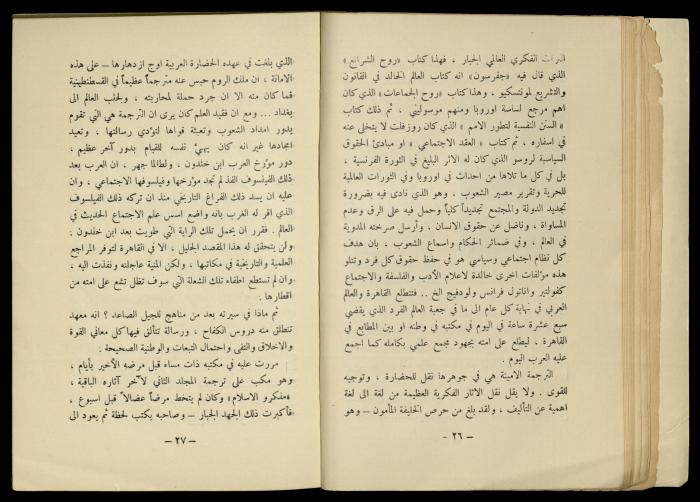 التراث الفكري العالمي الجبار ، فهذا كتاب «روح الشرائع»
الذي قال فيه «جفرسون» انه كتاب العالم الخالد في القانون
والتشريع لمونتسكيو ، وهذا كتاب «روح الجماعات» الذي كان
اهم مرجع لساسة اوروبا ومنهم موسوليني ، ثم ذلك كتاب
«السنن النفسية لتطور الامم» الذي كان روزفلت لا يتخلى عنه
في اسفاره ، ثم كتاب «العقد الاجتماعي» او مبادئ الحقوق
السياسية لروسو الذي كان له الاثر البليغ في الثورة الفرنسية ،
بل في كل ما تلاها من احداث في اوروبا وفي الثورات العالمية
للحرية وتقرير مصير الشعوب ، وهو الذي نادى فيه بضرورة
تجديد الدولة والمجتمع تجديداً كلياً وحمل فيه على الرق وعدم
المساواة ، وناضل عن حقوق الانسان ، وأرسل صرخته المدوية
في العالم ، وفي ضمائر الحكام واسماع الشعوب ، بان هدف
كل نظام اجتماعي وسياسي هو في حفظ حقوق كل فرد وتتلو
هذه مؤلفات اخرى خالدة لاعلام الأدب والفلسفة والاجتماع
كفولتير واناتول فرانس ولودفيج الخ .. فتتطلع القاهرة والعالم
العربي في نهاية كل عام الى ما في جعبة العالم الفرد الذي يقضي
سبع عشرة ساعة في اليوم في مكتبه في وطنه او بين المطابع في
القاهرة ، ليطلع على امته بجهود مجمع علمي بكامله كما اجمع
عليه العرب اليوم .
الترجمة الامينة هي في جوهرها نقل للحضارة ، وتوجيه
للقوى . ولا يقل نقل الاثار الفكرية العظيمة من لغة الى لغة
اهمية عن التأليف ، ولقد بلغ من حرص الخليفة المأمون – وهو
– ٢٦ –
الذي بلغت في عهده الحضارة العربية اوج ازدهارها – على هذه
الامانة ، ان ملك الروم حبس عنه مترجماً عظيماً في القسطنطينية
فما كان منه الا ان جرد حملة لمحاربته ، ولجلب العالم الى
بغداد ... ومع ان فقيد العلم كان يرى ان الترجمة هي التي تقوم
بدور امداد الشعوب وتعبئة قواها لتؤدي رسالتها ، وتعيد
امجادها غير انه كان يهيئ نفسه للقيام بدور آخر عظيم ،
دور مؤرخ العرب ابن خلدون ، ولطالما جهر ، ان العرب بعد
ذلك الفيلسوف الفذ لم تجد مؤرخها وفيلسوفها الاجتماعي ، وان
عليه ان يسد ذلك الفراغ التاريخي منذ ان تركه ذلك الفيلسوف
الذي اقر له الغرب بانه واضع اسس علم الاجتماع الحديث في
العالم . فقرر ان يحمل تلك الراية التي طويت بعد ابن خلدون .
ولن يتحقق له هذا المقصد الجليل ، الا في القاهرة لتوفر المراجع
العلمية والتاريخية في مكاتبها ، ولكن المنية عاجلته ونفذت اليه ،
وان لم تستطع اطفاء تلك الشعلة التي سوف تظل تشع على امته من
اقطارها .
ثم ماذا في سيرته بعد من مناهج للجيل الصاعد ؟ انه معهد
تنطلق منه دروس الكفاح ، ورسالة تتألق فيها كل معاني القوة
والاخلاق والتقى واحتمال التبعات والوطنية الصحيحة :
مررت عليه في مكتبه ذات مساء قبل مرضه الأخير بأيام ،
وهو مكب على ترجمة المجلد الثاني لآخر آثاره الباقية ،
«مفكرو الاسلام» وكان لم يتخط مرضاً عضالاً قبل اسبوع ،
فأكبرت ذلك الجهد الجبار – وصاحبه يكتب لحظة ثم يعود الى
– ٢٧ –